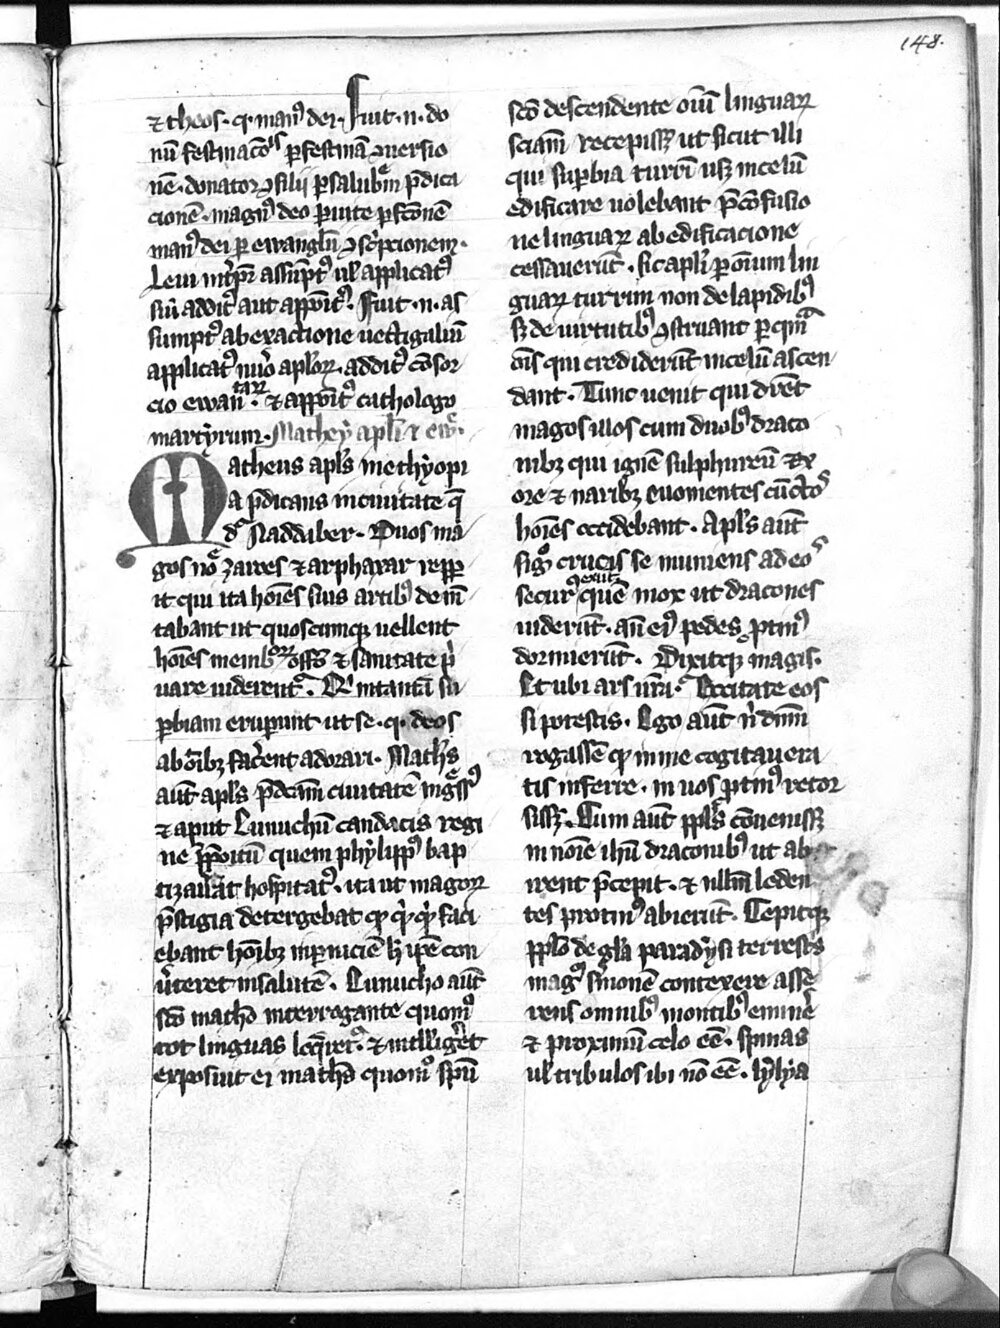 148.
⁊ theos · q̇ · man⁹ dei · Fuit · n̄ · do
nū festinac̄ois p̲festinā ꝯuersio
nē · donator ꝯsilii p̲ salubrem p̄dica
cionē · magn⁹ deo p̲ uite p̲fcc̄onē
man⁹ dei p̲ ewangl̄ii ꝯsc̄pcionem ·
Leui int̄p̄r assūpt⁹ ul̄ applicat⁹
siū addit⁹ aut appōit⁹ · Fuit · n̄ · as
sumpt⁹ ab exactione uectigaliū
applicat⁹ nūo apl̄oꝝ · addit⁹ cōsor
cio ewāntaꝝ · ⁊ appōit⁹ cathologo
martyrum · Mathey apl̄i ⁊ ew̄ ·
Matheus apl̄s in ethyopi
a p̄dicans in ciuitate q̄
dr̄ Naddaber · Duos ma
gos noīe zaroes ⁊ arphaxar repp̲
it qui ita hoīes suis artib⁹ demē
tabant ut quoscumqꝫ uellent
hoīes membroꝝ offō ⁊ sanitate p̄
uare uiderent᷑ · Qī in tantū su
p̲biam erupunt ut se · q̇ · deos
ab oībꝫ fac̄ent adorari · Math̄s
aūt apl̄s p̄dcām ciuitatē ingr̄ss⁹
⁊ aput Eunuchū candacis regi
ne p̄positū quem phylipp⁹ bap
tizau̅at hospitat⁹ · ita ut magoꝝ
p̄stigia detergebat qꝫ q̇cq̇d faci
ebant hoībꝫ in p̲niciē h̄ ip̄e con
u̅teret in salutē · Eunucho aūt
sc̄o math̄o interrogante quom̊
tot linguas loq̄ret᷑ · ⁊ intellig̅et
exposuit ei math̄s quom̊ sp̄u
sc̄o descendente oīū linguaꝝ
sciam̄ recepissꝫ ut sicut illi
qui sup̲bia turrī usqꝫ in celū
edificare uolebant p̄ cōfusio
ne linguaꝝ ab edificacione
cessauerūt · sic apl̄i p̲ om̄um lin
guaꝝ turrim non de lapidib⁹
sꝫ de uirtutib⁹ ꝯstruant p̲ q̄m
oēs qui crediderūt in celū ascen
dant · Tunc uenit qui dic̄et
magos illos cum duob⁹ draco
nibꝫ qui ignē sulphureū ⁊ ex
ore ⁊ naribꝫ euomentes cūcto⁹
hoīes occidebant · Apl̄s aūt
sigō crucis se muniens ad eos
secur⁹ exiit quē mox ut dracones
uiderūt · an̄ ei⁹ pedes ꝓtin⁹
dormierūt · Dixitqꝫ magis ·
Et ubi ars ur̄a · Excitate eos
si potestis · Ego aūt n̄ dn̄m
rogassē qꝫ in me cogitauera
tis inferre · in uos ꝓtin⁹ retor
sissꝫ · Cum aūt ppl̄s cōuenissꝫ
in noīe ih̄u draconib⁹ ut ab
irent p̄cepit · ⁊ nullū leden
tes protin⁹ abierūt · Cepitqꝫ
ppl̄o de gl̄a paradysi terrestris
mag⁹ s̄monē contexere asse
rens omnib⁹ montib⁹ emine̅
⁊ proximū celo eē · spinas
ul̄ tribulos ibi nō eē · lylya